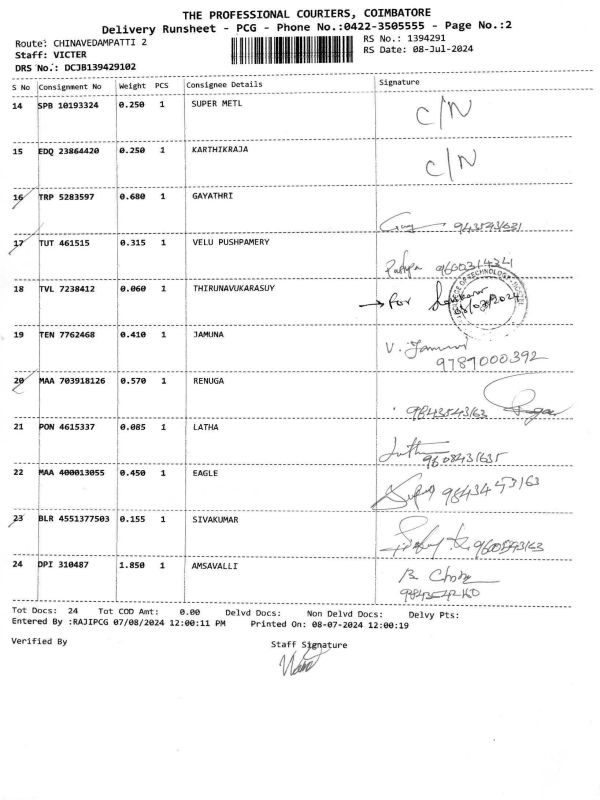 THE PROFESSIONAL COURIERS, COIMBATORE
Delivery Runsheet - PCG - Phone No.:0422-3505555 - Page No.:2
Route: CHINAVEDAMPATTI 2 RS No.: 1394291
Staff: VICTER RS Date: 08-Jul-2024
DRS No.: DCJB139429102
S No Consignment No Weight PCS Consignee Details Signature
14 SPB 10193324 0.250 1 SUPER METL C/N
15 EDQ 23864420 0.250 1 KARTHIKRAJA C/N
16 TRP 5283597 0.680 1 GAYATHRI
17 TUT 461515 0.315 1 VELU PUSHPAMERY Pushpa
18 TVL 7238412 0.060 1 THIRUNAVUKARASUY → For
19 TEN 7762468 0.410 1 JAMUNA V. Jamuna
9789000392
20 MAA 703918126 0.570 1 RENUGA
21 PON 4615337 0.085 1 LATHA
22 MAA 400013055 0.450 1 EAGLE
23 BLR 4551377503 0.155 1 SIVAKUMAR
24 DPI 310487 1.850 1 AMSAVALLI
Tot Docs: 24 Tot COD Amt: 0.00 Delvd Docs: Non Delvd Docs: Delvy Pts:
Entered By :RAJIPCG 07/08/2024 12:00:11 PM Printed On: 08-07-2024 12:00:19
Verified By Staff Signature